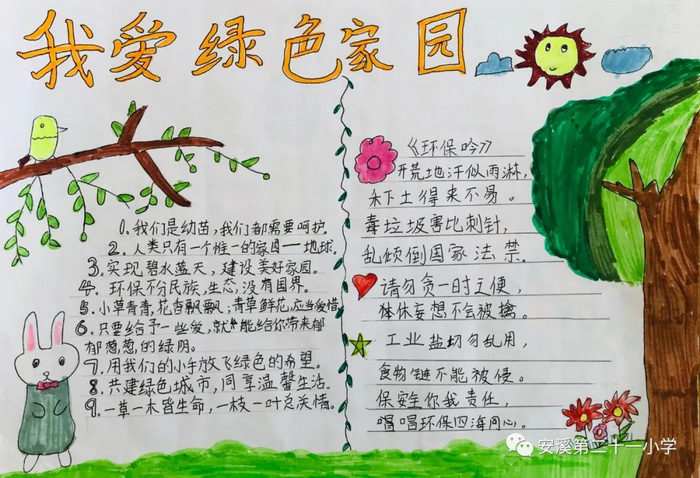 我爱绿色家园
1. 我们是幼苗，我们都需要呵护。
2. 人类只有一个惟一的家园——地球。
3. 实现碧水蓝天，建设美好家园。
4. 环保不分民族，生态没有国界。
5. 小草青青，花香飘飘，青草鲜花，应当爱惜
6. 只要给予一些爱，就能给你带来郁
郁葱葱的绿阴。
7. 用我们的小手放飞绿色的希望。
8. 共建绿色城市，同享温馨生活。
9. 一草一木皆生命，一枝一叶总关情。
《环保吟》
开荒地汗似雨淋，
木下土得来不易。
毒垃圾害比刺针，
乱倾倒国家法禁。
请勿贪一时之便，
体妄想不会被擒。
工业盐切勿乱用，
食物链不能被侵。
保安全你我责任，
唱唱环保四海同心。
安溪第二十一小学